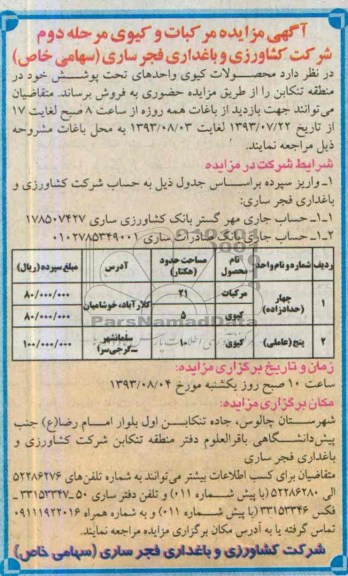 آگهی مزایده مرکبات و کیوی مرحله دوم
شرکت کشاورزی و باغداری فجر ساری (سهامی خاص)
در نظر دارد محصـــولات کیوی واحدهای تحت پوشــش خود در
منطقه تنکابن را از طریق مزایده حضوری به فروش برساند. متقاضیان
می‌توانند جهت بازدید از باغات همه روزه از ساعت ۸ صبح لغایت ۱۷
از تاریخ ۱۳۹۳/۰۷/۲۲ لغایت ۱۳۹۳/۰۸/۰۳ به محل باغات مشروحه
ذیل مراجعه نمایند.
شرایط شرکت در مزایده
۱ـ واریز سپرده براســاس جدول ذیل به حساب شرکت کشاورزی و
باغداری فجر ساری:
۱ـ۱ـ حساب جاری مهر گستر بانک کشاورزی ساری ۱۷۸۵۰۷۴۲۷
۲ـ۱ـ حساب جاری بانک صادرات ساری ۰۱۰۲۷۸۵۳۴۹۰۰۱
ردیف شماره و نام واحد نام محصول مساحت حدود (هکتار) آدرس مبلغ سپرده (ریال)
۱ چهار (حدادزاده) مرکبات ۲۱ کلارآباد، خوشامیان ۸۰/۰۰۰/۰۰۰
کیوی ۵ ۸۰/۰۰۰/۰۰۰
۲ پنج (عاملی) کیوی ۱۰ سلمانشهر ـ کرجی‌سرا ۱۰۰/۰۰۰/۰۰۰
ParsNamadData
زمان و تاریخ برگزاری مزایده:
ساعت ۱۰ صبح روز یکشنبه مورخ ۱۳۹۳/۰۸/۰۴
مکان برگزاری مزایده:
شهرســتان چالوس، جاده تنکابــن اول بلوار امـام رضا(ع) جنب
پیش‌دانشــگاهی باقرالعلوم دفتر منطقه تنکابن شرکت کشاورزی و
باغداری فجر ساری
متقاضیان برای کسب اطلاعات بیشتر می‌توانند به شماره تلفن‌های ۵۲۲۸۶۲۷۶
الی ۵۲۲۸۶۲۸۰ (با پیش شـــماره ۰۱۱) و تلفن دفتر ساری ۵۰ـ۳۳۱۵۳۳۴۷ـ
فکس ۳۳۱۵۳۳۴۶ (با پیش شماره ۰۱۱) و به شماره همراه ۰۹۱۱۱۹۲۲۰۱۶
تماس گرفته یا به آدرس مکان برگزاری مزایده مراجعه نمایند.
شرکت کشاورزی و باغداری فجر ساری (سهامی خاص)